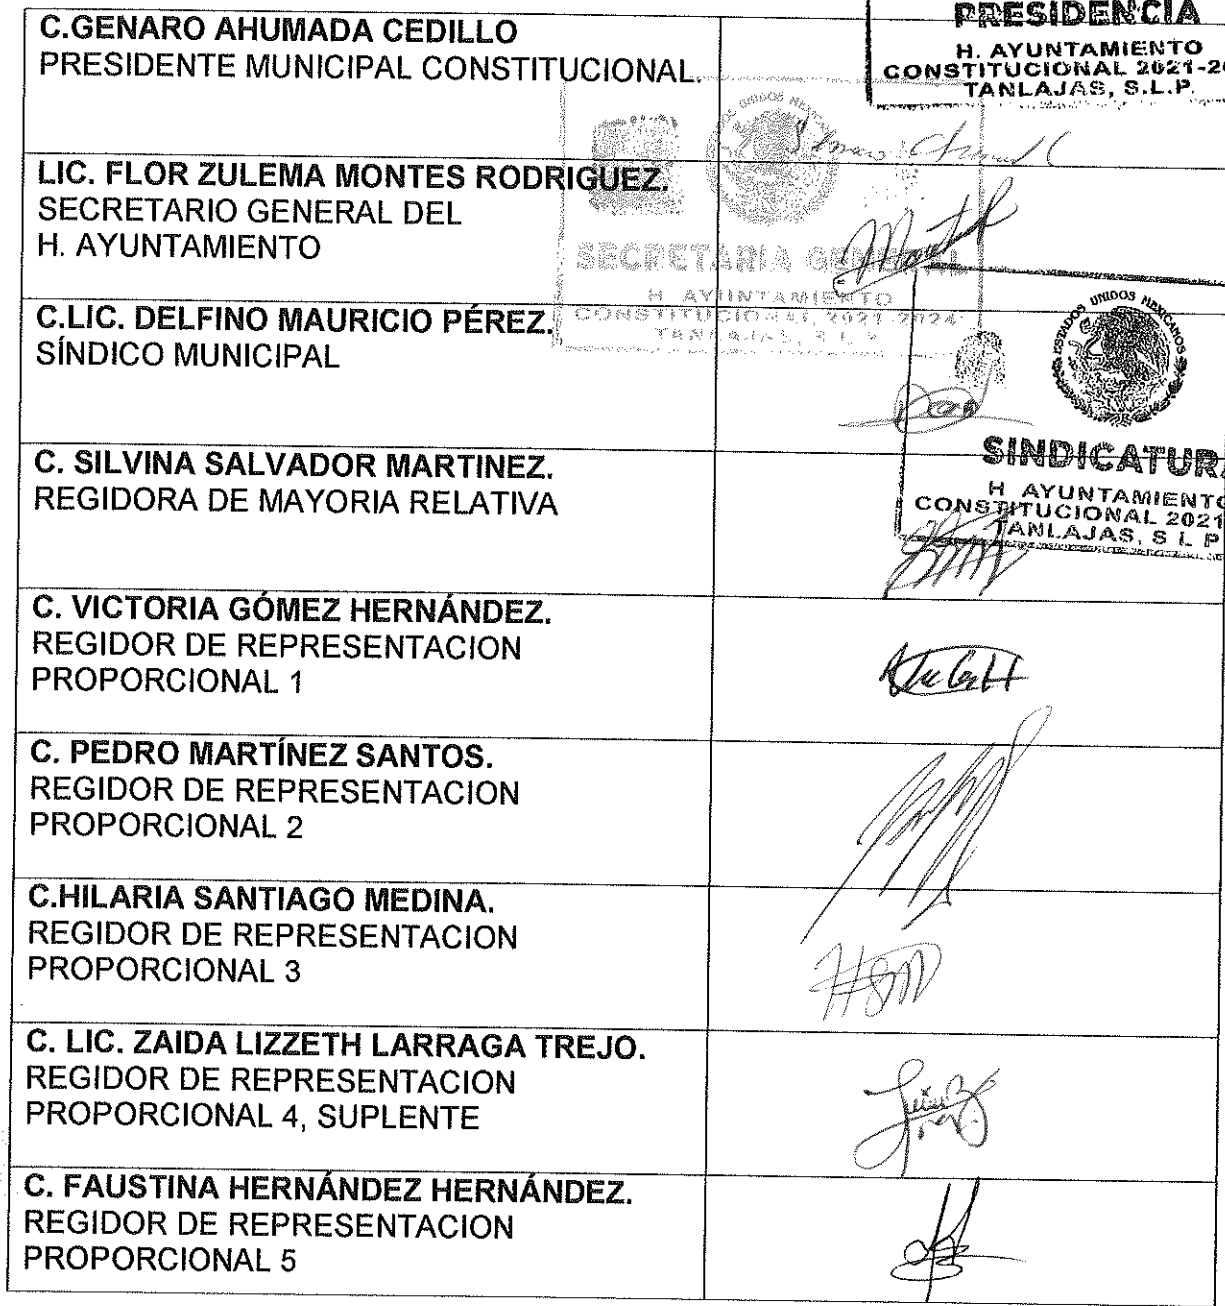 C.GENARO AHUMADA CEDILLO
PRESIDENTE MUNICIPAL CONSTITUCIONAL.
PRESIDENCIA
H. AYUNTAMIENTO
CONSTITUCIONAL 2021-20
TANLAJAS, S.L.P.
LIC. FLOR ZULEMA MONTES RODRIGUEZ.
SECRETARIO GENERAL DEL
H. AYUNTAMIENTO
SECRETARIA GENERAL
H. AYUNTAMIENTO
CONSTITUCIONAL 2021-2024
TANLAJAS, S.L.P.
C.LIC. DELFINO MAURICIO PÉREZ.
SÍNDICO MUNICIPAL
ESTADOS UNIDOS MEXICANOS
SINDICATURA
H AYUNTAMIENTO
CONSTITUCIONAL 2021
TANLAJAS, S L P
C. SILVINA SALVADOR MARTINEZ.
REGIDORA DE MAYORIA RELATIVA
C. VICTORIA GÓMEZ HERNÁNDEZ.
REGIDOR DE REPRESENTACION
PROPORCIONAL 1
C. PEDRO MARTÍNEZ SANTOS.
REGIDOR DE REPRESENTACION
PROPORCIONAL 2
C.HILARIA SANTIAGO MEDINA.
REGIDOR DE REPRESENTACION
PROPORCIONAL 3
HSM
C. LIC. ZAIDA LIZZETH LARRAGA TREJO.
REGIDOR DE REPRESENTACION
PROPORCIONAL 4, SUPLENTE
C. FAUSTINA HERNÁNDEZ HERNÁNDEZ.
REGIDOR DE REPRESENTACION
PROPORCIONAL 5